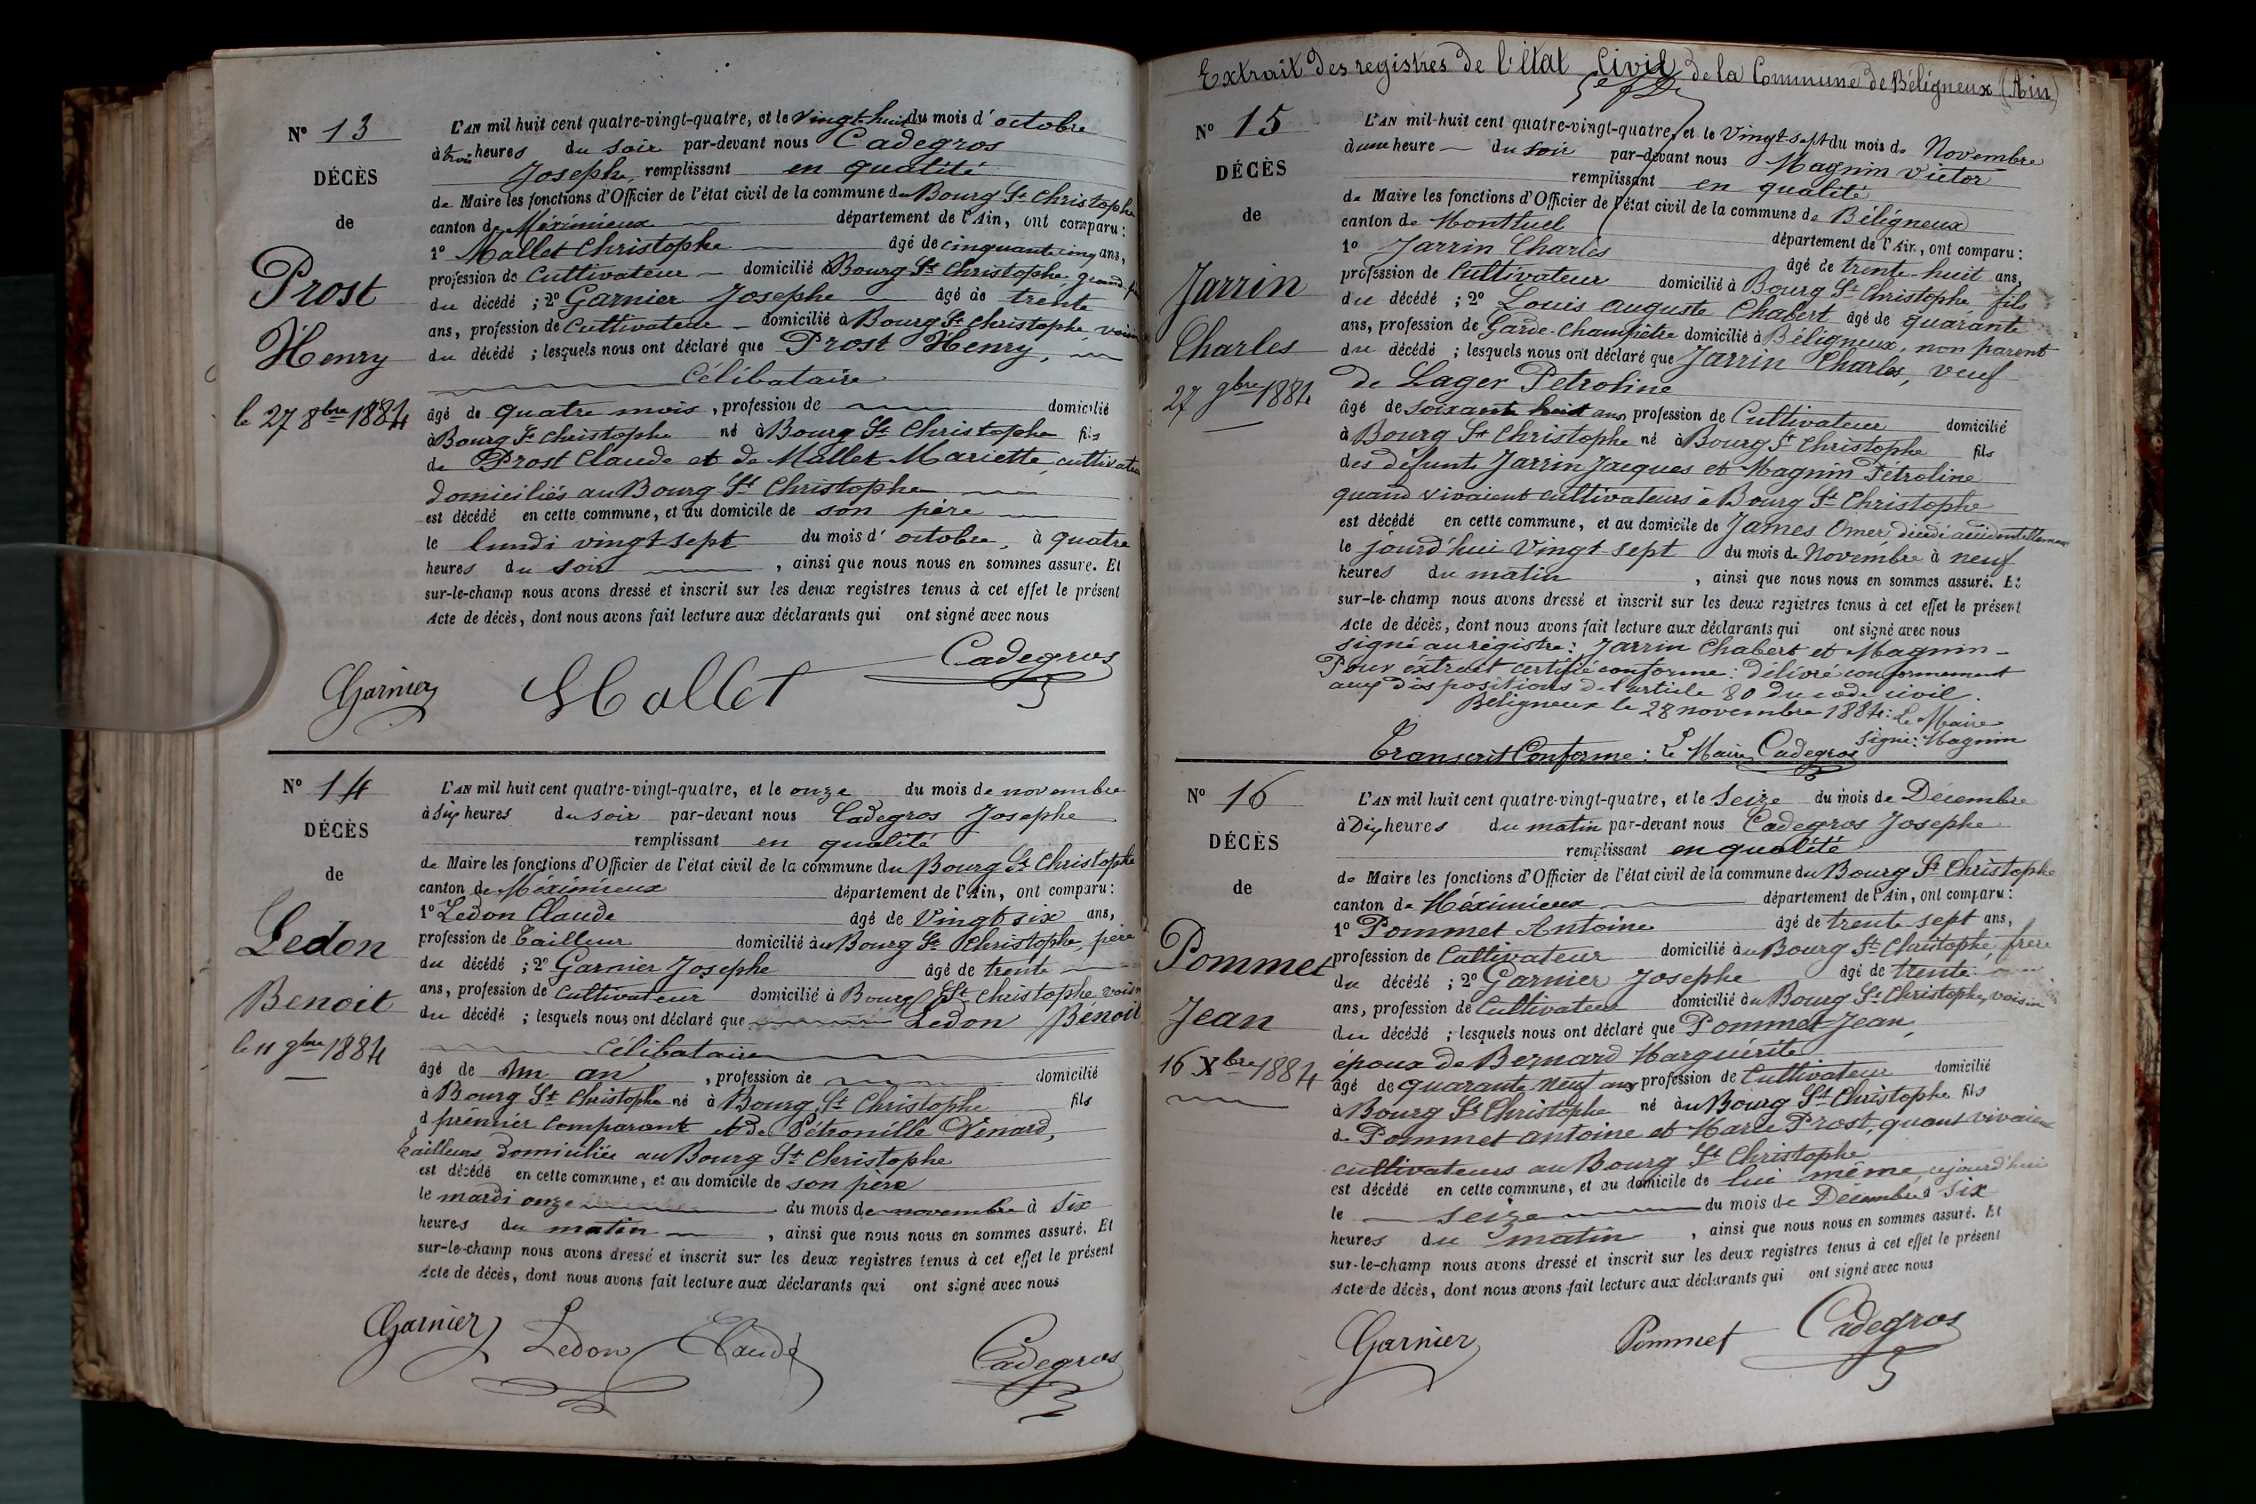 Nº 13
DÉCÈS
de
Prost
Henry
le 27 8bre 1884
L'AN mil huit cent quatre-vingt-quatre, et le vingt-huit du mois d'octobre
à trois heures du soir par-devant nous Cadegros
Josephe, remplissant en qualité
de Maire les fonctions d'Officier de l'état civil de la commune de Bourg St Christophe
canton de Méximieux département de l'Ain, ont comparu :
1º Mallet Christophe âgé de cinquante cinq ans,
profession de Cultivateur domicilié à Bourg St Christophe, grand-
du décédé ; 2º Garnier Josephe âgé de trente
ans, profession de Cultivateur domicilié à Bourg St Christophe, voisin
du décédé ; lesquels nous ont déclaré que Prost Henry,
Célibataire
âgé de quatre mois, profession de domicilié
à Bourg St Christophe né à Bourg St Christophe fils
de Prost Claude et de Mallet Mariette, cultivateurs
domiciliés au Bourg St Christophe
est décédé en cette commune, et au domicile de son père
le lundi vingt sept du mois d'octobre, à quatre
heures du soir, ainsi que nous nous en sommes assuré. Et
sur-le-champ nous avons dressé et inscrit sur les deux registres tenus à cet effet le présent
Acte de décès, dont nous avons fait lecture aux déclarants qui ont signé avec nous
Garnier Mallet Cadegros
Nº 14
DÉCÈS
de
Ledon
Benoit
le 11 9bre 1884
L'AN mil huit cent quatre-vingt-quatre, et le onze du mois de novembre
à six heures du soir par-devant nous Cadegros Josephe
remplissant en qualité
de Maire les fonctions d'Officier de l'état civil de la commune du Bourg St Christophe
canton de Méximieux département de l'Ain, ont comparu :
1º Ledon Claude âgé de vingt six ans,
profession de Tailleur domicilié au Bourg St Christophe, père
du décédé ; 2º Garnier Josephe âgé de trente
ans, profession de Cultivateur domicilié à Bourg St Christophe, voisin
du décédé ; lesquels nous ont déclaré que Ledon Bénoit
célibataire
âgé de un an, profession de domicilié
à Bourg St Christophe né à Bourg St Christophe fils
d prémier comparant et de Pétronille Venard,
Tailleurs domiciliés au Bourg St Christophe
est décédé en cette commune, et au domicile de son père
le mardi onze du mois de novembre à six
heures du matin, ainsi que nous nous en sommes assuré. Et
sur-le-champ nous avons dressé et inscrit sur les deux registres tenus à cet effet le présent
Acte de décès, dont nous avons fait lecture aux déclarants qui ont signé avec nous
Garnier Ledon Claude Cadegros
Extrait des registres de l'État Civil de la Commune de Béligneux (Ain)
Nº 15
DÉCÈS
de
Jarrin
Charles
27 9bre 1884
L'AN mil-huit cent quatre-vingt-quatre, et le vingt-sept du mois de Novembre
à une heure du soir par-devant nous Magnin Victor
remplissant en qualité
de Maire les fonctions d'Officier de l'état civil de la commune de Béligneux
canton de Montluel département de l'Ain, ont comparu :
1º Jarrin Charles âgé de trente-huit ans,
profession de Cultivateur domicilié à Bourg St Christophe fils
du décédé ; 2º Louis auguste Chabert âgé de quarante
ans, profession de Garde-Champêtre domicilié à Béligneux, non parent
du décédé ; lesquels nous ont déclaré que Jarrin Charles, veuf
de Lager Petroline
âgé de soixante huit ans profession de Cultivateur domicilié
à Bourg St Christophe né à Bourg St Christophe fils
des défunts Jarrin Jacques et Magnin Pétroline
quand vivaient cultivateurs à Bourg St Christophe
est décédé en cette commune, et au domicile de James Omer décédé accidentellement
le jourd'hui vingt-sept du mois de Novembre à neuf
heures du matin, ainsi que nous nous en sommes assuré. Et
sur-le-champ nous avons dressé et inscrit sur les deux registres tenus à cet effet le présent
Acte de décès, dont nous avons fait lecture aux déclarants qui ont signé avec nous
signé au régistre : Jarrin Chabert et Magnin
Pour extrait certifié conforme : délivré conformement
aux dispositions de l'article 80 du code civil.
Béligneux le 28 novembre 1884 : Le Maire
signé : Magnin
Transcrit Conforme : Le Maire Cadegros
Nº 16
DÉCÈS
de
Pommet
Jean
16 Xbre 1884
L'AN mil huit cent quatre-vingt-quatre, et le Seize du mois de Décembre
à Dix heures du matin par-devant nous Cadegros Josephe
remplissant en qualité
de Maire les fonctions d'Officier de l'état civil de la commune du Bourg St Christophe
canton de Méximieux département de l'Ain, ont comparu :
1º Pommet Antoine âgé de trente sept ans,
profession de Cultivateur domicilié au Bourg St Christophe, frère
du décédé ; 2º Garnier Josephe âgé de trente
ans, profession de Cultivateur domicilié au Bourg St Christophe, voisin
du décédé ; lesquels nous ont déclaré que Pommet Jean,
époux de Bernard Marguérite
âgé de quarante neuf ans profession de Cultivateur domicilié
à Bourg St Christophe né au Bourg St Christophe fils
de Pommet antoine et Marie Prost, quant vivaient
cultivateurs au Bourg St Christophe
est décédé en cette commune, et au domicile de lui même, cejourd'hui
le seize du mois de Décembre à six
heures du matin, ainsi que nous nous en sommes assuré. Et
sur-le-champ nous avons dressé et inscrit sur les deux registres tenus à cet effet le présent
Acte de décès, dont nous avons fait lecture aux déclarants qui ont signé avec nous
Garnier Pommet Cadegros